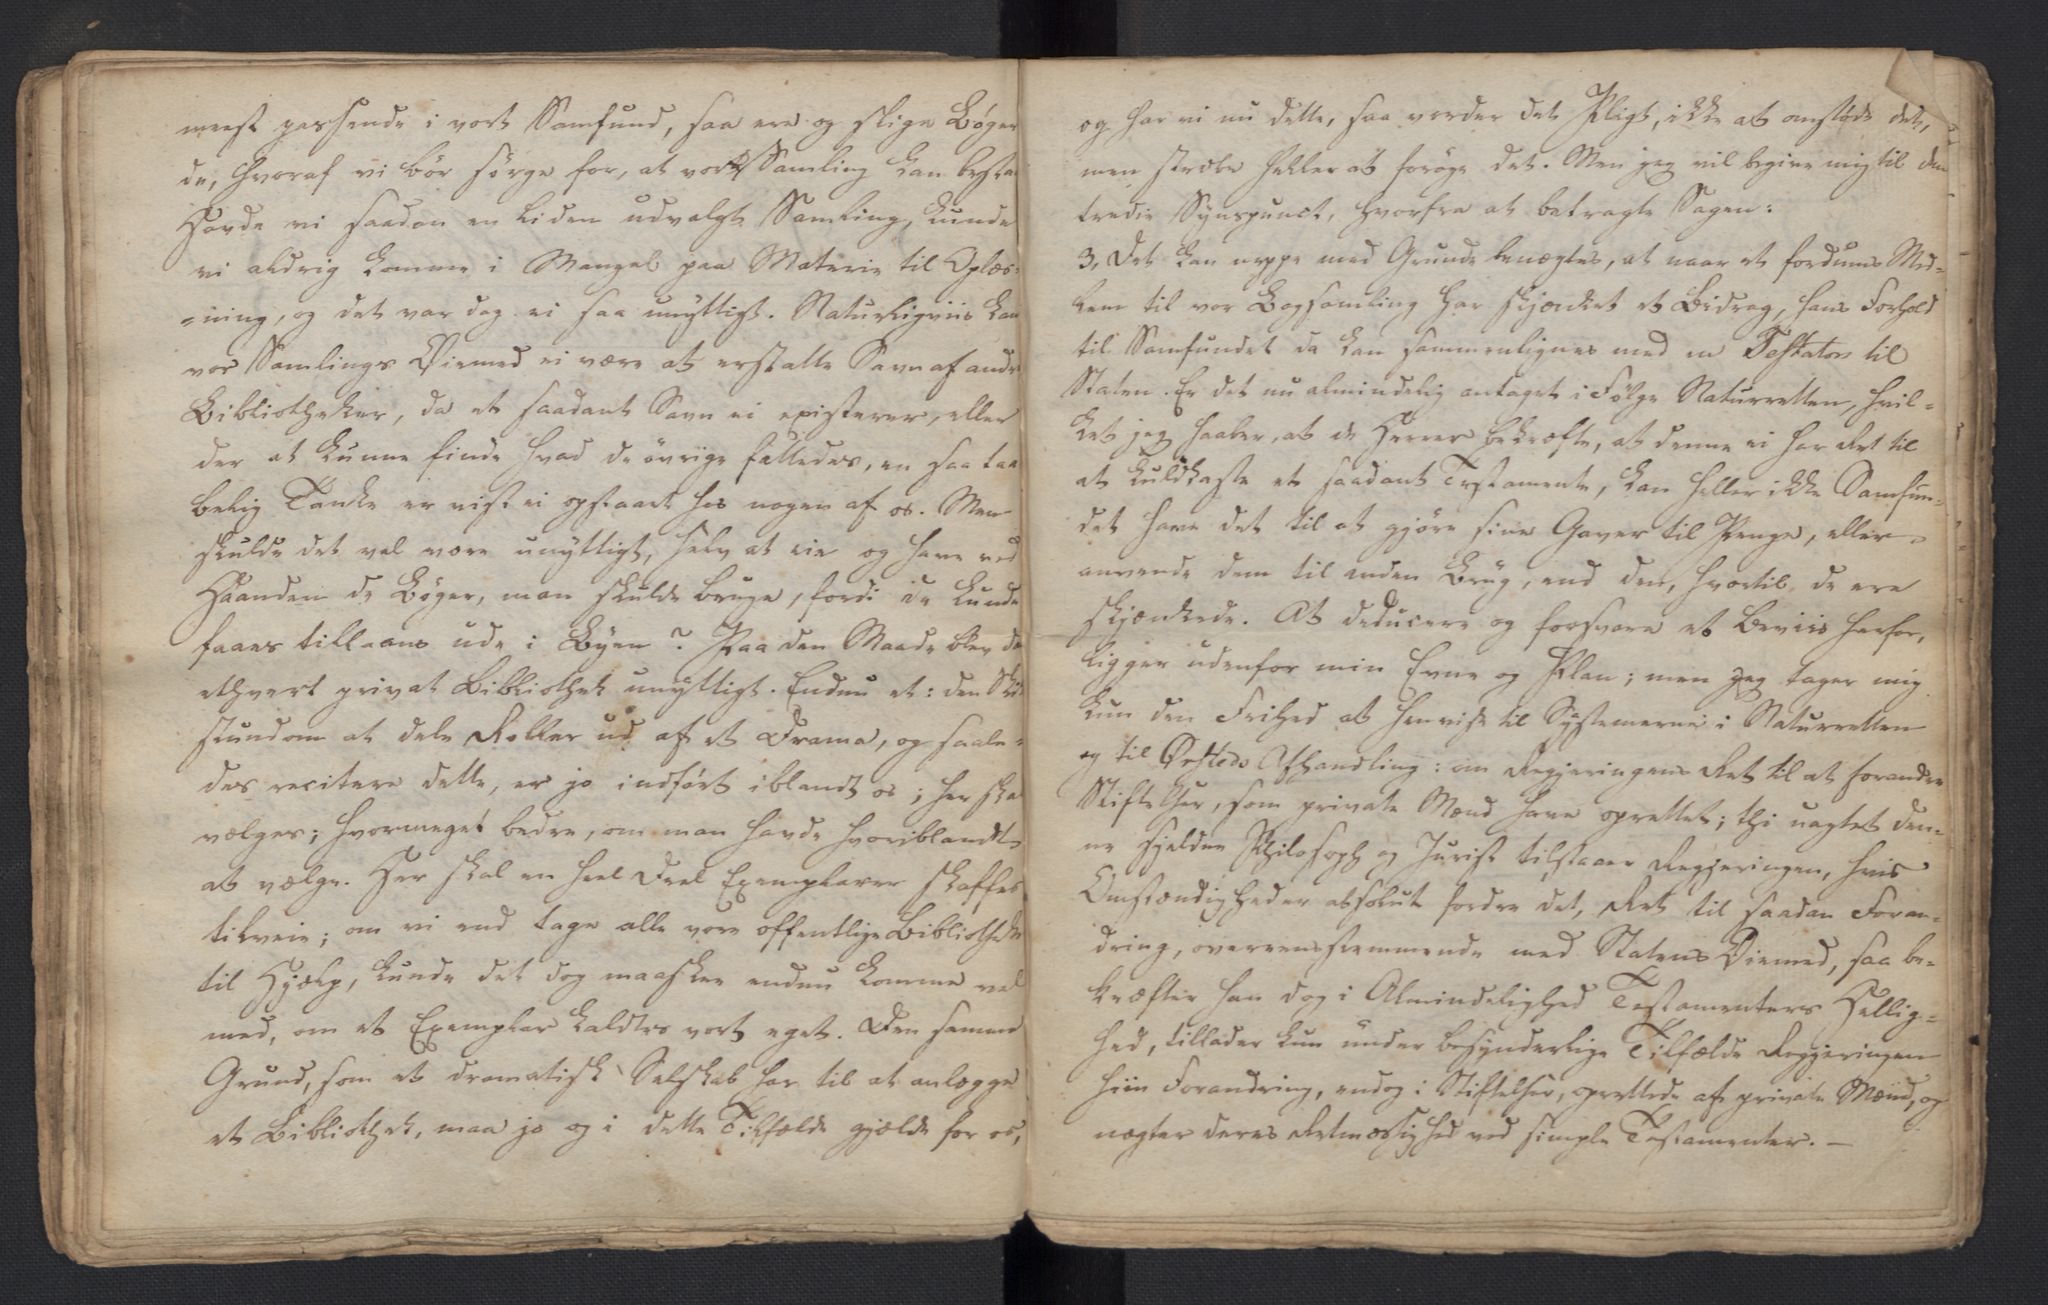 meest passende i vort Samfund, saa ere og slige Bøger
de, hvoraf vi bör sörge for, at vor Samling kan bestaa
Havde vi saadan en liden udvalgt Samling, kunde
vi aldrig komme i Mangel paa Materie til Oplæs-
-ning, og det var dog ei saa unyttigt. Naturligviis kan
vor Samlings Øiemed ei være at erstatte Savn af andre
Bibliotheker, da et saadant Savn ei existerer, eller
der at kunne finde hvad de övrige fattedes, en saa taa
belig Tanke er vist ei opstaaet hos nogen af os. Men
skulde det vel være unyttigt, selv at eie og have ved
Haanden de Bøger, man skulde bruge, fordi de kunde
faaes tillaans ude i Byen? Paa den Maade blev da
ethvert privat Bibliothek unyttigt. Endnu et: den Skik
stundom at dele Roller ud af et Drama, og saale-
des recitere dette, er jo indfört iblandt os; her skal
vælges; hvormeget bedre, om man havde hvoriblandt
at vælge. Her skal en heel Deel Exemplarer skaffes
tilveie; om vi end tage alle vore offentlige Bibliotheker
til Hjælp, kunde det dog maaskee endnu komme vel
med, om et Exemplar kaldtes vort eget. Den samme
Grund, som et dramatisk Selskab har til at anlægge
et Bibliothek, maa jo og i dette Tilfælde gjælde for os,
og har vi nu dette, saa vorder det Pligt, ikke at omstöde det,
men stræbe heller at foröge det. Men jeg vil begive mig til den
tredie Synspunct, hvorfra at betragte Sagen:
3, Det kan neppe med Grunde benægtes, at naar et fordums Med-
lem til vor Bogsamling har skjænket et Bidrag, hans Forhold
til Samfundet da kan sammenlignes med en Testators til
Staten. Er det nu almindelig antaget i Fölge Naturretten, hvil-
ket jeg haaber, at de Herrer bekræfte, at denne ei har Ret til
at kuldkaste et saadant Testamente, kan heller ikke Samfun-
det have det til at gjöre sine Gaver til Penge, eller
anvende dem til anden Brug, end den, hvortil de ere
skjænkede. At deducere og forsvare et Beviis herfor,
ligger udenfor min Evne og Plan; men jeg tager mig
kun den Frihed at henvise til Systemerne i Naturretten
og til Ørsteds Afhandling: om Regjeringens Ret til at forandre
Stiftelser, som private Mænd have oprettet; thi uagtet den-
ne sjeldne Philosoph og Jurist tilstaaer Regjeringen, hvis
Omstændigheder absolut fordre det, Ret til saadan Foran-
dring, overeensstemmende med Statens Øiemed, saa be-
kræfter han dog i Almindelighed Testamenters Hellig-
hed, tillader kun under besynderlige Tilfælde Regjeringen
hiin Forandring, endog i Stiftelser, oprettede af private Mænd, og
nægter deres Retmæssighed ved simple Testamenter. —